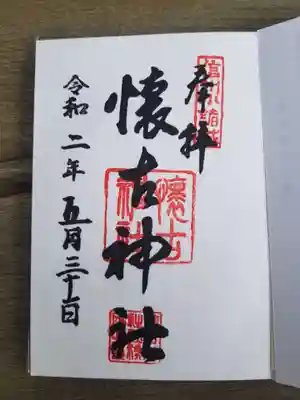 信州小諸城
奉拝
懐古神社
懐古神社
令和二年五月三十一日